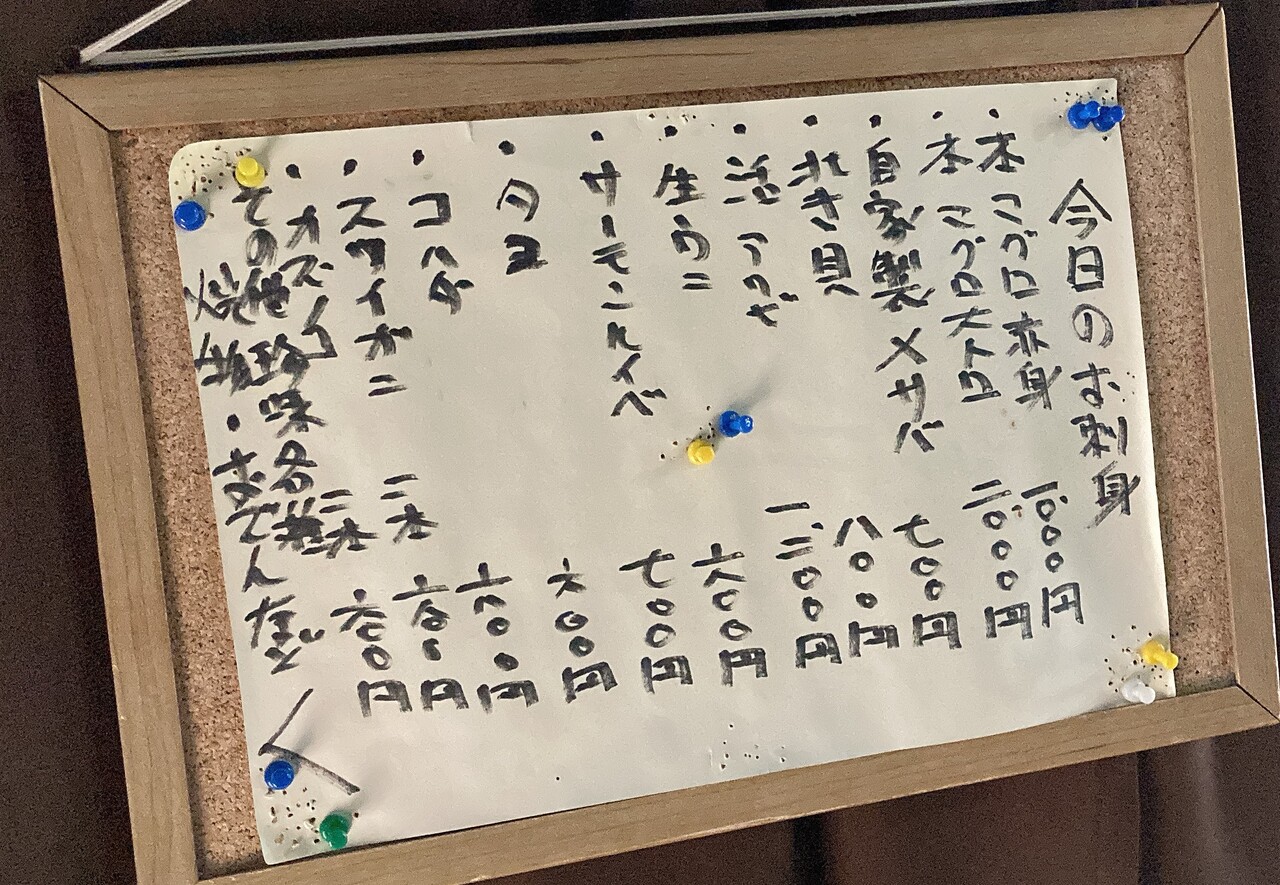 今日のお刺身
・本マグロ赤身 一、〇〇〇円
・本マグロ大トロ 二、〇〇〇円
・自家製〆サバ 七〇〇円
・北き貝 八〇〇円
・活アワビ 一、二〇〇円
・生ウニ 六〇〇円
・サーモンルイベ 七〇〇円
・タコ 六〇〇円
・コハダ 六〇〇円
・ズワイガニ 二本 六〇〇円
・カズノコ 二本 六〇〇円
その他珍味各種
焼物・おでんなど